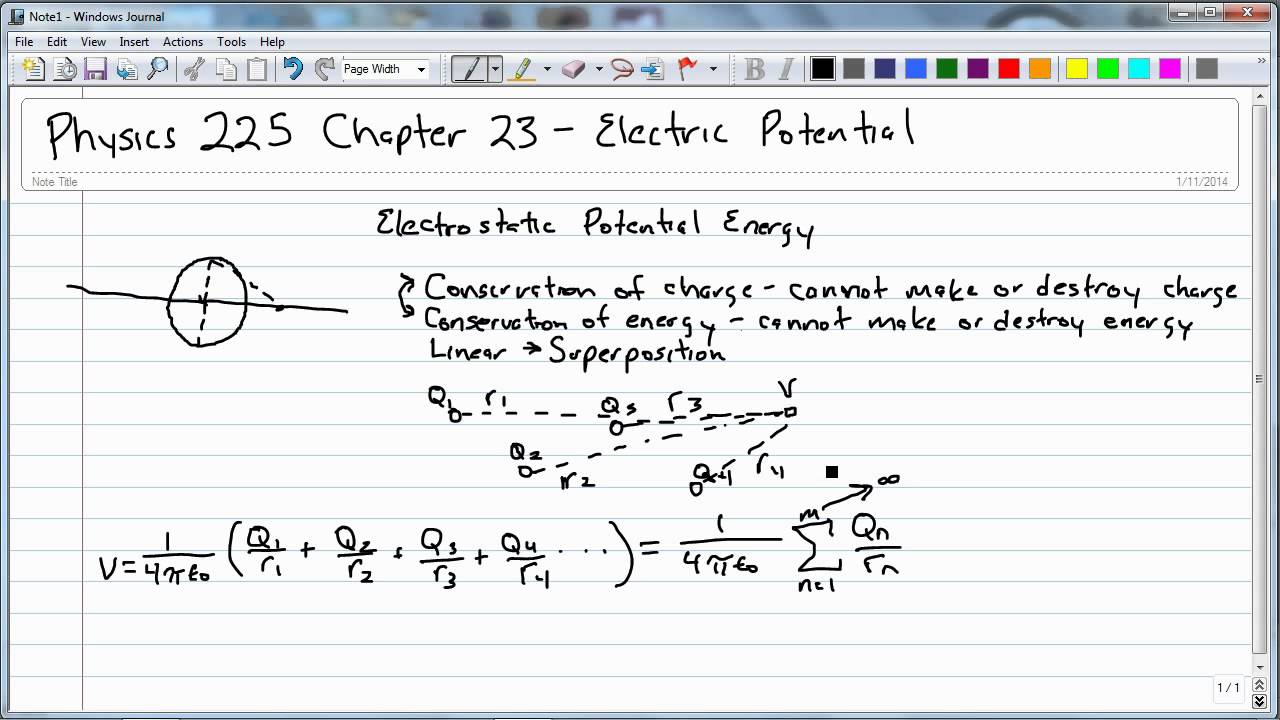 Note1 - Windows Journal
File Edit View Insert Actions Tools Help
Page Width B I
Physics 225 Chapter 23 - Electric Potential
Note Title 1/11/2014
Electrostatic Potential Energy
Conservation of charge - cannot make or destroy charge
Conservation of energy - cannot make or destroy energy
Linear → Superposition
Q1 r1 Q3 r3 V
Q2 r2 Q4 r4
V = 1/4πε0 (Q1/r1 + Q2/r2 + Q3/r3 + Q4/r4 ...) = 1/4πε0 m→∞ Σ n=1 Qn/rn
1 / 1